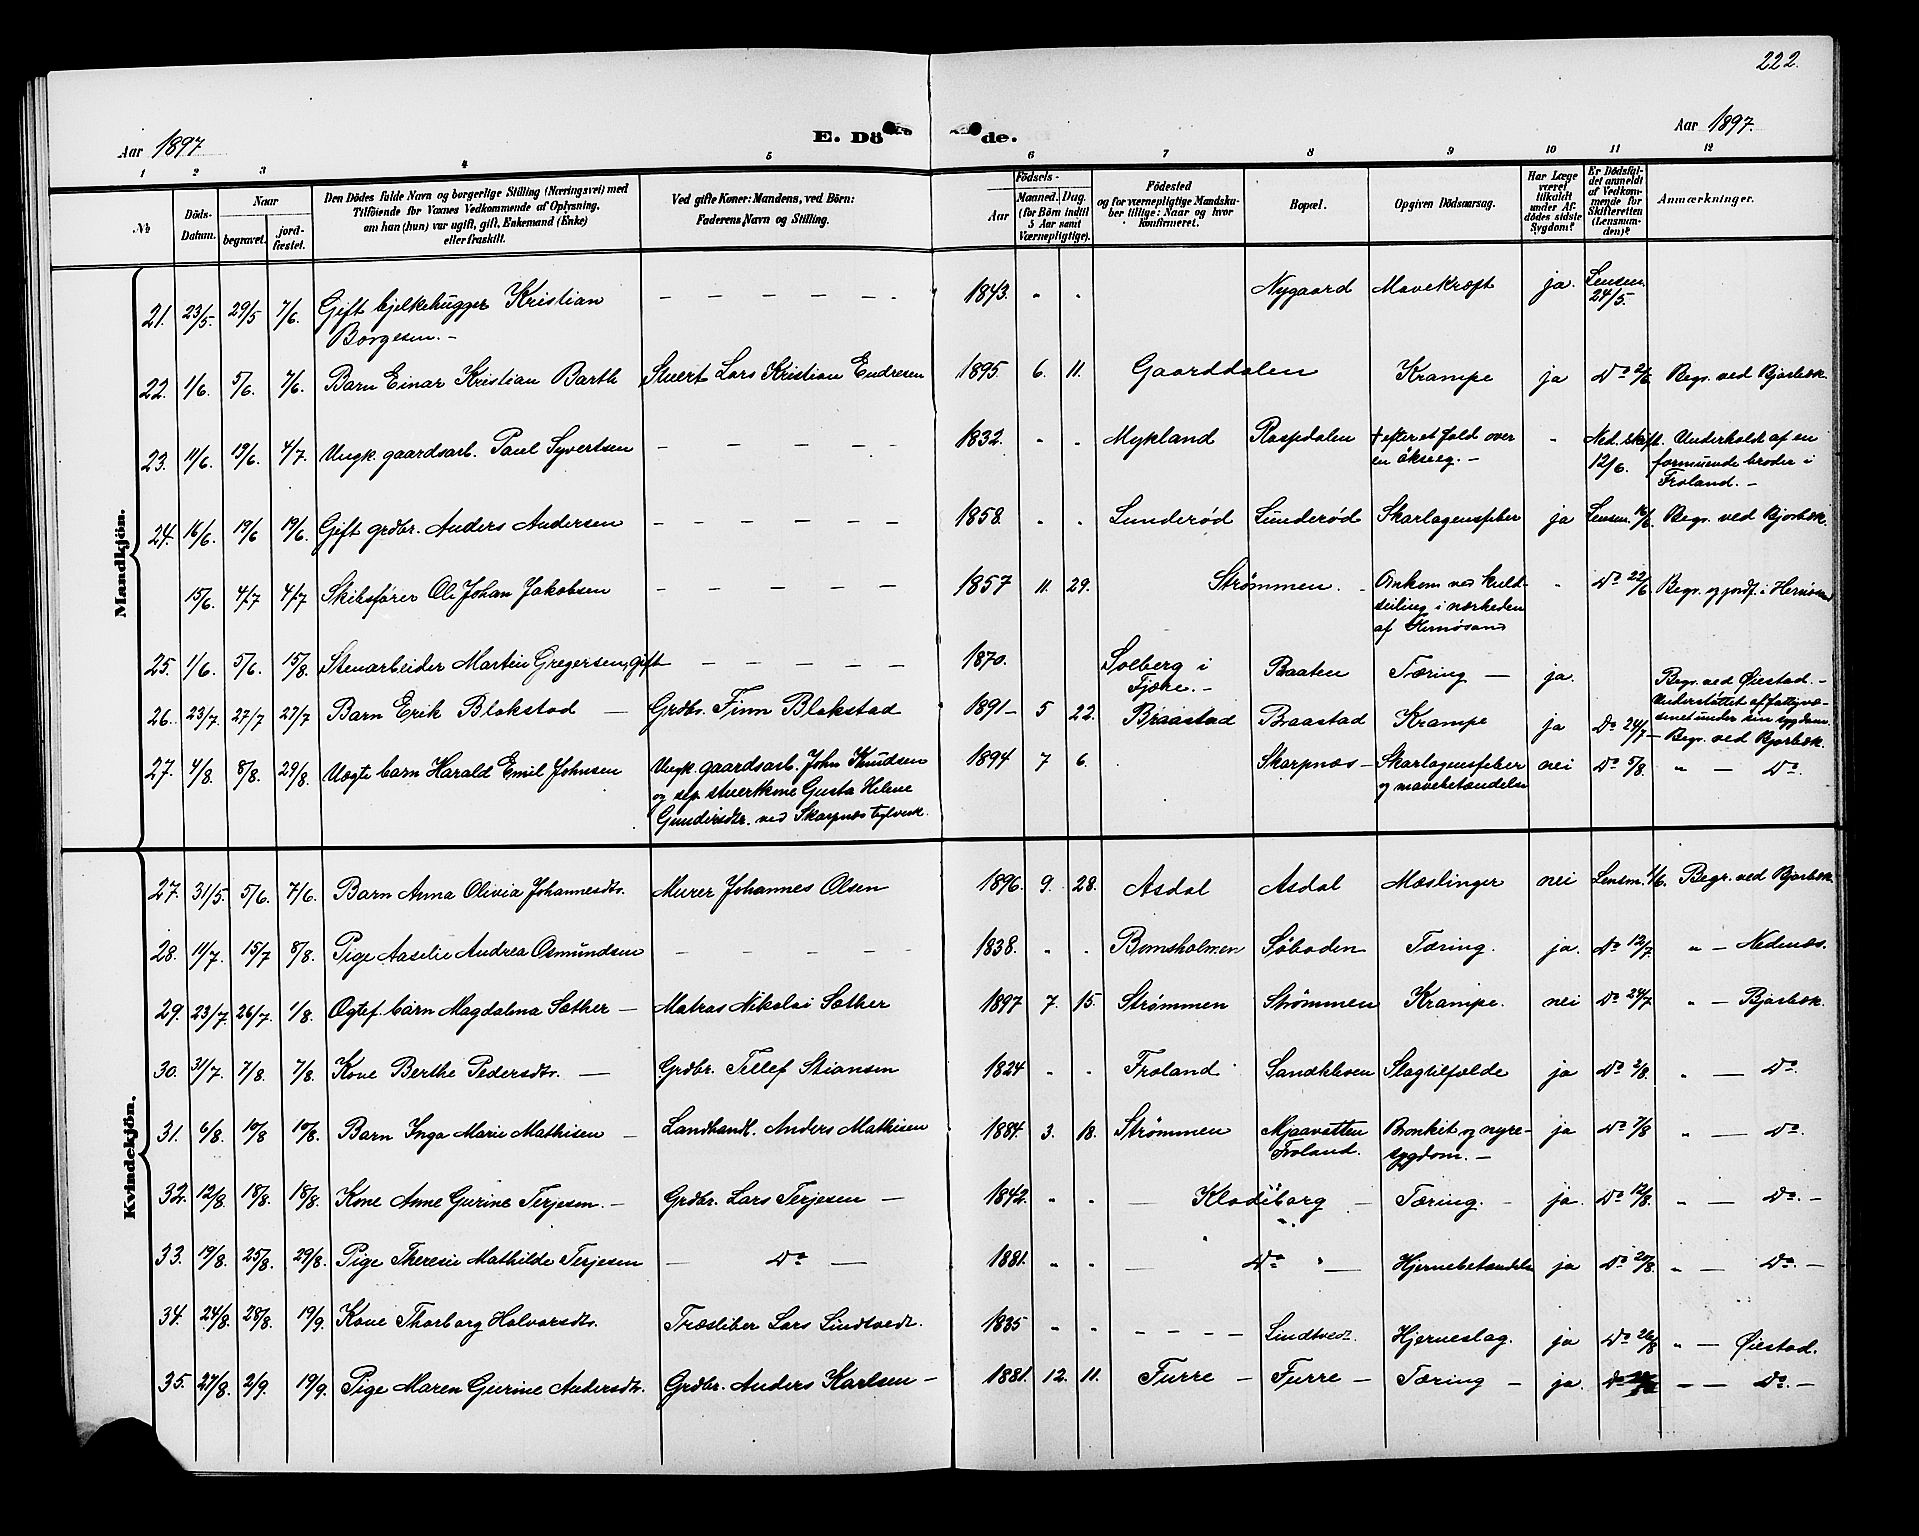 222.
Aar 1897.
E. Dö de.
Aar 1897.
1 2 3 4 5 6 7 8 9 10 11 12
№ Döds-Datum. Naar begravet. jord-fæstet. Den Dödes fulde Navn og borgerlige Stilling (Næringsvei) med Tilföiende for Voxnes Vedkommende af Oplysning, om han (hun) var ugift, gift, Enkemand (Enke) eller fraskilt. Ved gifte Koner: Mandens, ved Börn: Faderens Navn og Stilling. Födsels- Aar Maaned. Dag. (for Börn indtil 5 Aar samt Værnepligtige). Födested og for værnepligtige Mandskaber tillige: Naar og hvor konfirmeret. Bopæl. Opgiven Dödsaarsag. Har Læge været tilkaldt under Afdödes sidste Sygdom? Er Dödsfaldet anmeldt af Vedkommende for Skifteretten (Lensmanden)? Anmærkninger.
Mandkjön.
21. 23/5. 29/5 7/6. Gift bjelkehugger Kristian Borgesen. – – – – – – – 1843. " " Nygaard Mavekræft ja Lensm. 24/5.
22. 1/6. 5/6. 7/6. Barn Einar Kristian Barth Stuert Lars Kristian Endresen 1895. 6. 11. Gaarddalen Krampe ja Do 2/6. Begr. ved Bjorbæk.
23. 11/6. 19/6. 4/7. Ungk. gaardsarb. Paul Syvertsen – – – – – – 1832. " " Mykland Raspedalen + efter et fald over en økseeg. – " Ned. skift. 12/6. Underholdt af en formuende broder i Froland. –
24. 16/6. 19/6 19/6. Gift grdbr. Anders Andersen – – – – – – 1858. " " Lunderød Lunderød Skarlagensfeber ja Lensm. 16/6. Begr. ved Bjorbæk.
15/6. 4/7 4/7 Skibsfører Ole Johan Jakobsen – – – – – – 1857 11. 29. Strømmen. – Omkom ved kuldseiling i nærheden af Hernøsand " Do 22/6 Begr. og jordf. i Hernøsand
25. 1/6. 5/6. 15/8. Stenarbeider Martin Gregersen, gift – – – – – 1870. Solberg i Fjære. – Baaten Tæring – ja. Begr. ved Øiestad. –
26. 23/7. 27/7 27/7 Barn Erik Blakstad – Grdbr. Finn Blakstad 1891– 5 22. Braastad Baastad Krampe ja Do 24/7 Understøttet af fattigvæsenet under sin sygdom. – Begr. ved Bjorbæk.
27. 4/8. 8/8. 29/8. Uægte barn Harald Emil Johnsen Ungk. gaardsarb. John Knudsen og sep. stuertkone Gusta Helene Gundersdtr. ved Skarpnæs teglverk. 1894 7 6. Skarpnæs – Skarlagensfeber og mavebetændelse nei Do 5/8. " – Do.
Kvindekjön.
27. 31/5. 5/6. 7/6. Barn Anna Olivia Johannesdtr. Murer Johannes Olsen 1896. 9. 28. Asdal Asdal Mæslinger nei Lensm. 1/6. Begr. ved Bjorbæk
28. 11/7. 15/7 8/8. Pige Aaselie Andrea Osmundsen – – – – 1838. " " Bomsholmen Søboden Tæring. ja. Do 12/7 " – Nedenæs.
29. 23/7. 26/7. 1/8. Ægtef. barn Magdalena Sæther – Matros Nikolai Sæther 1897 7. 15. Strømmen Strømmen Krampe. nei Do 24/7 " – Bjorbæk.
30. 31/7. 7/8. 7/8. Kone Berthe Pedersdtr. – Grdbr. Tellef Stiansen 1824 " " Froland Sandkleven Slagtilfælde ja Do 2/8. " – Do.
31. 6/8. 10/8 10/8. Barn Inga Marie Mathisen – Landhandl. Anders Mathisen 1884. 3. 18. Strømmen Mjaavatten Froland. Bronkit og nyresygdom. – ja Do 7/8 " – Do.
32. 12/8. 18/8. 18/8. Kone Anne Gurine Terjesen. – Grdbr. Lars Terjesen – 1842. " " – Klodeborg – Tæring. – ja. Do 12/8. " – Do. –
33. 19/8. 25/8. 29/8. Pige Theresie Mathilde Terjesen – Do – 1881. " " – Do " – Hjernebetændelse ja Do 20/8. " – Do. –
34. 24/8. 28/8. 19/9. Kone Thorborg Halvorsdtr. Træsliber Lars Lindtvedt. 1835 " " – – – – Lindtvedt. Hjerneslag. ja Do 26/8 " – Øiestad.
35. 27/8. 2/9. 19/9. Pige Maren Gurine Andersdtr. Grdbr. Anders Karlsen – 1881. 12. 11. Furre – Furre – Tæring – ja. Do – – Do. –